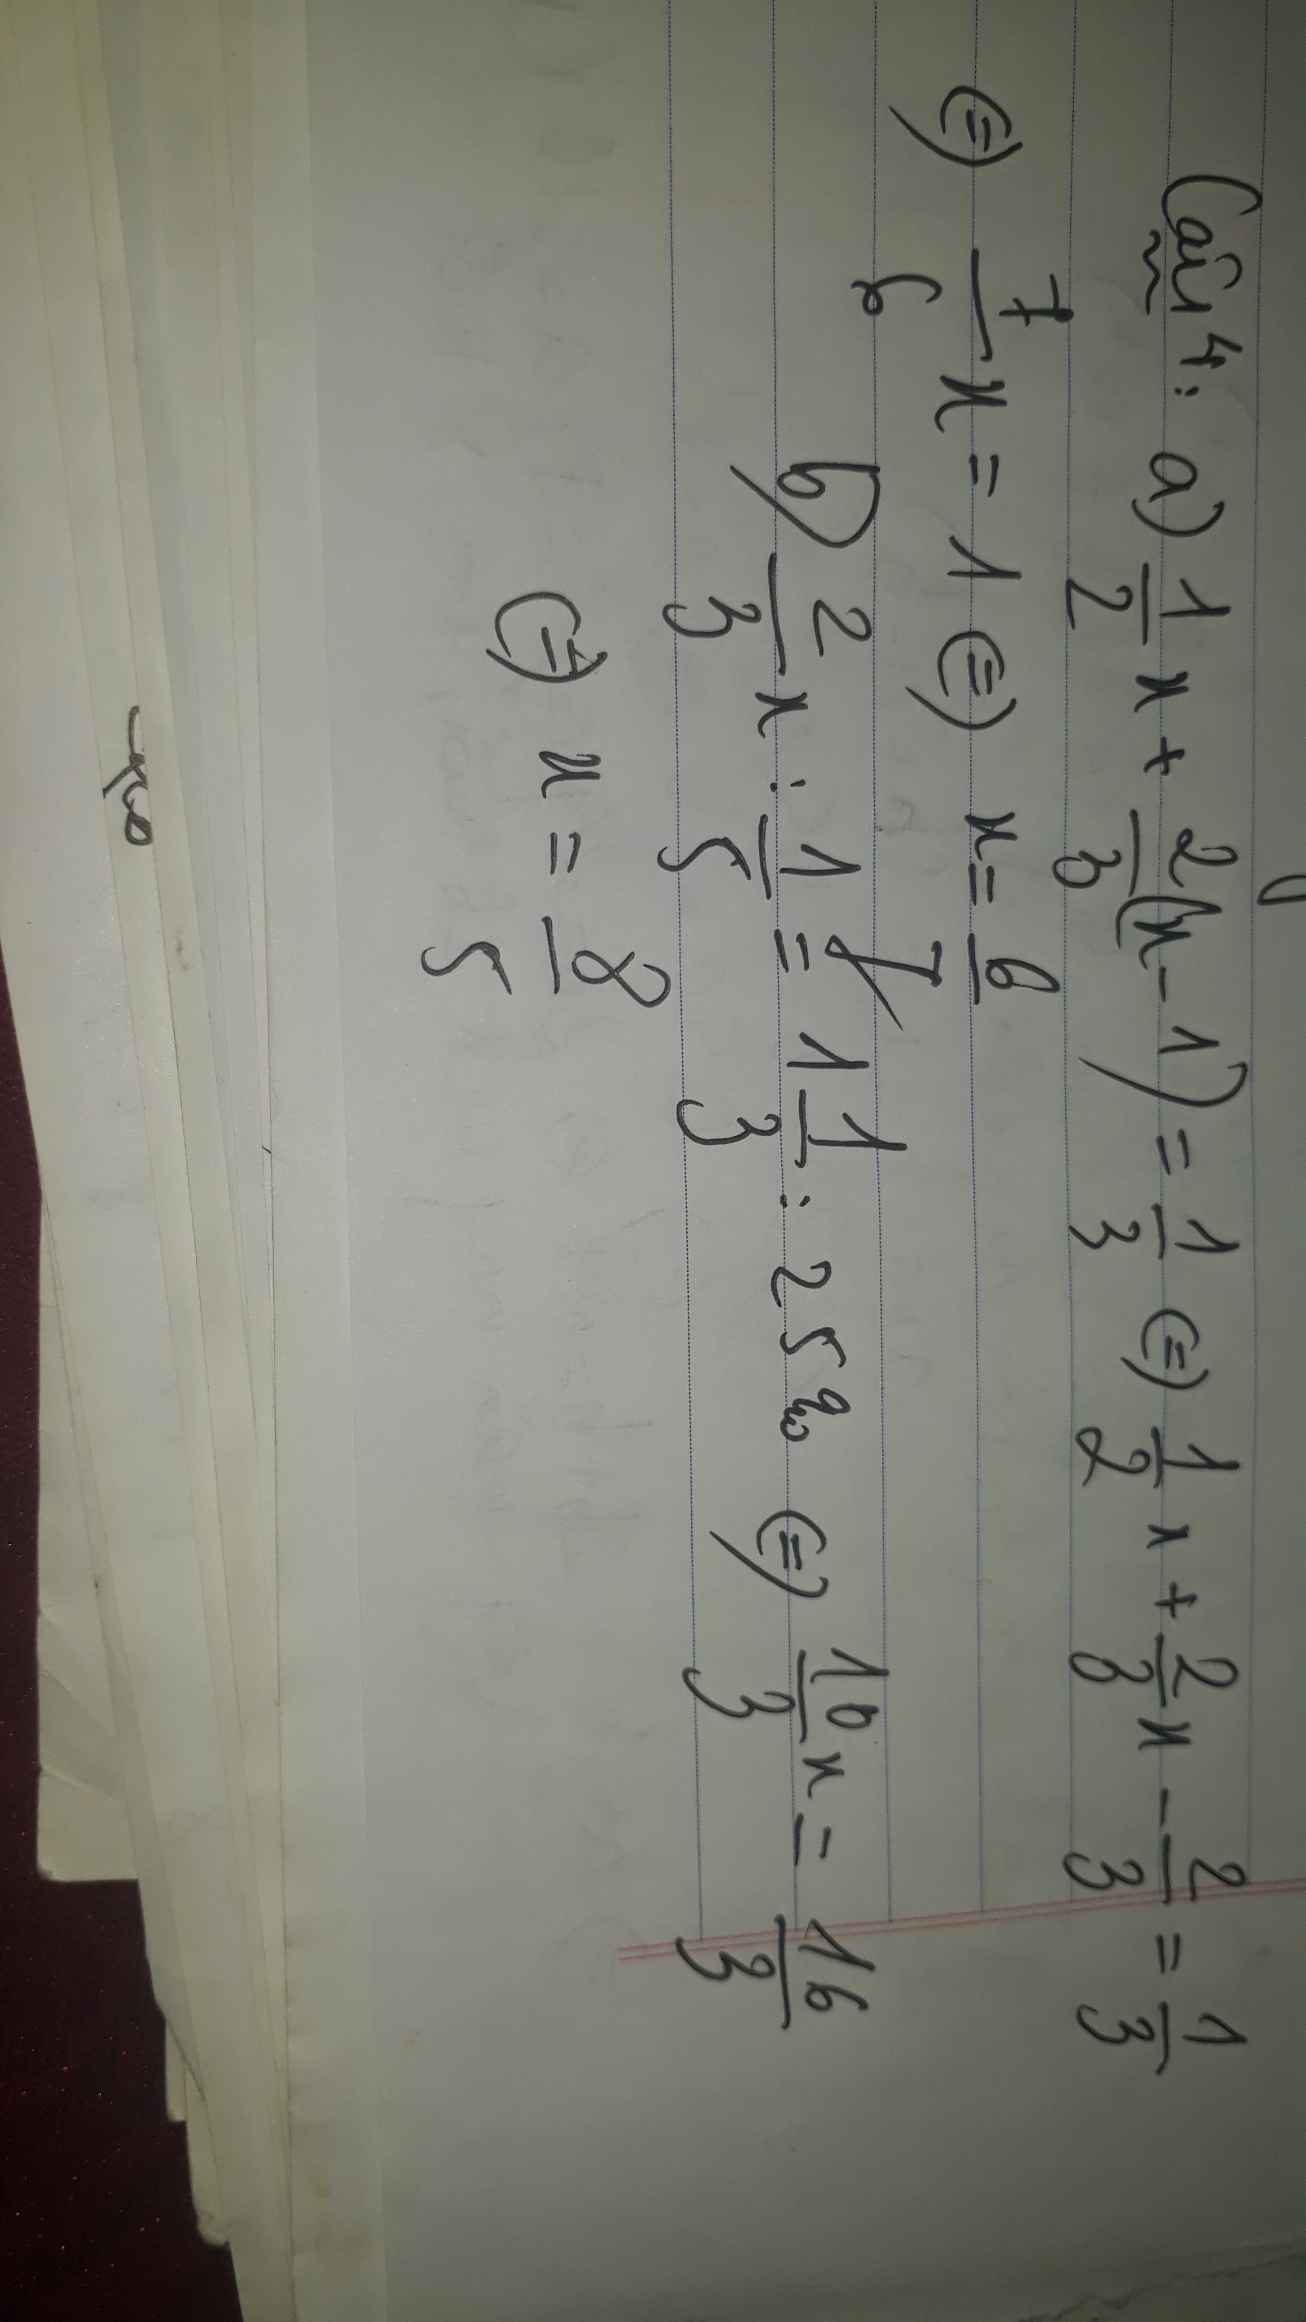 Câu 4: a) 1/2 x + 2/3 (x - 1) = 1/3 (=) 1/2 x + 2/3 x - 2/3 = 1/3
(=) 7/6 x = 1 (=) x = 6/7
b) 2/3 x : 1/5 = 1 1/3 : 25% (=) 10/3 x = 16/3
(=) x = 8/5